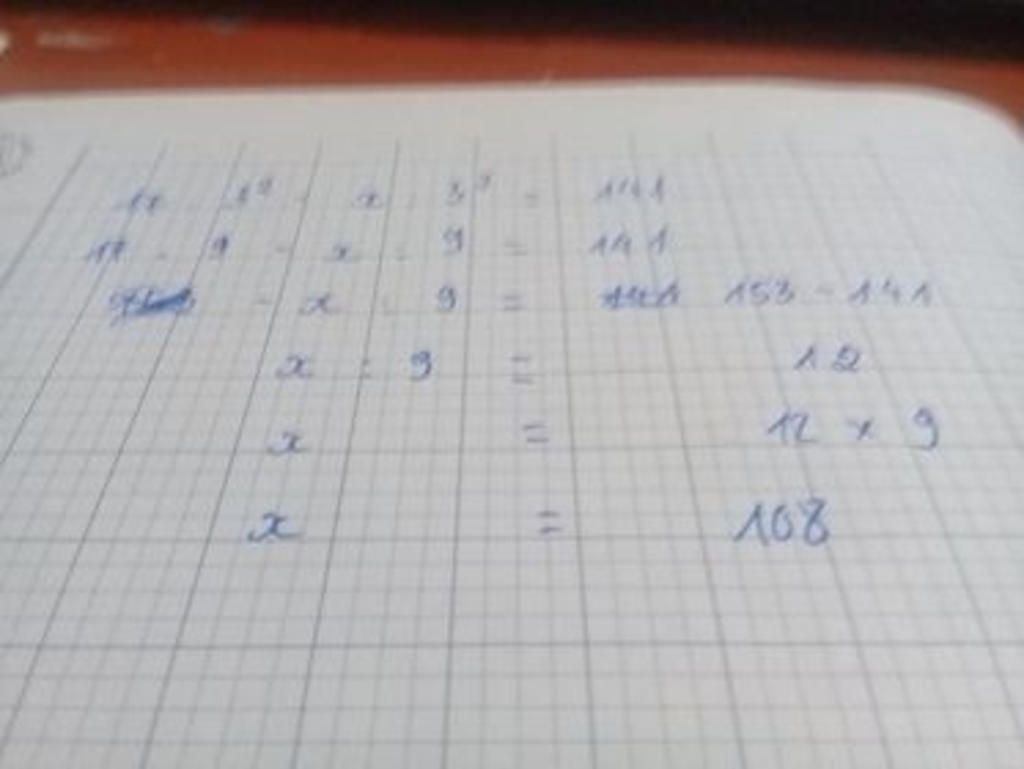 17 . 3² - x : 3² = 141
17 . 9 - x : 9 = 141
- x : 9 = 141 153 - 141
x : 9 = 12
x = 12 x 9
x = 108